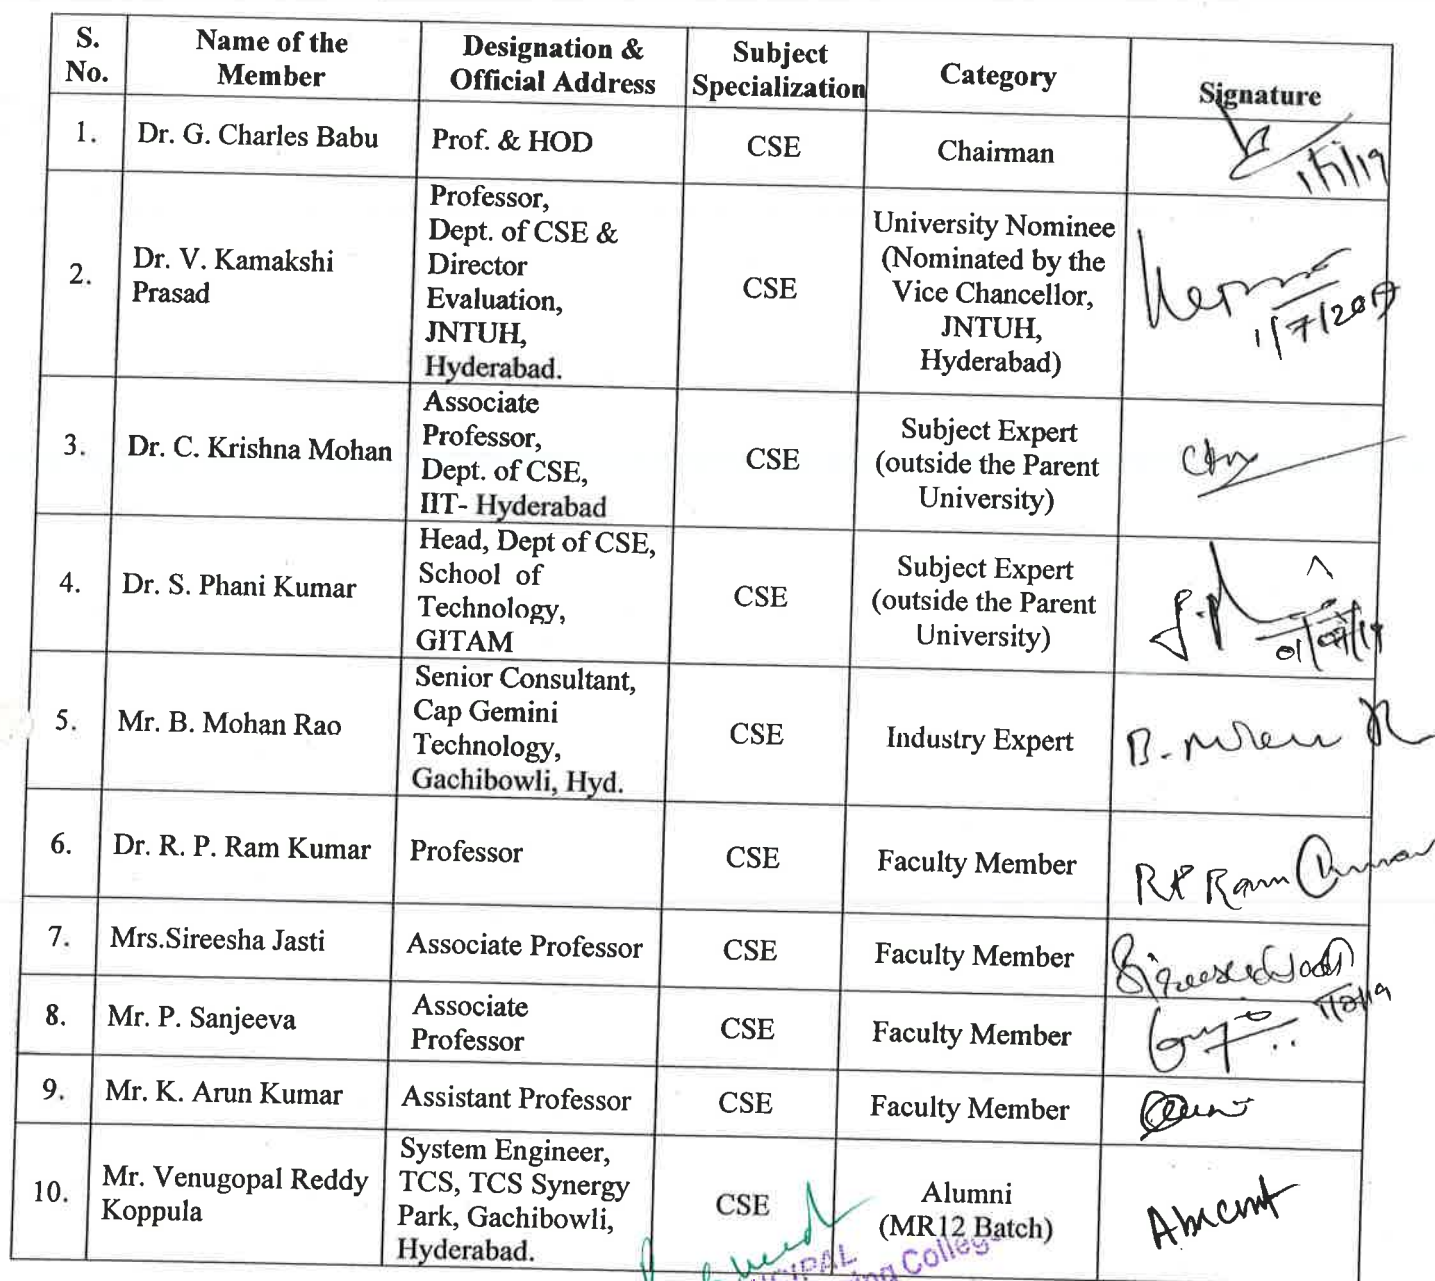 S. No. | Name of the Member | Designation & Official Address | Subject Specialization | Category | Signature
1. | Dr. G. Charles Babu | Prof. & HOD | CSE | Chairman | 1/7/19
2. | Dr. V. Kamakshi Prasad | Professor, Dept. of CSE & Director Evaluation, JNTUH, Hyderabad. | CSE | University Nominee (Nominated by the Vice Chancellor, JNTUH, Hyderabad) | 1/7/2019
3. | Dr. C. Krishna Mohan | Associate Professor, Dept. of CSE, IIT- Hyderabad | CSE | Subject Expert (outside the Parent University)
4. | Dr. S. Phani Kumar | Head, Dept of CSE, School of Technology, GITAM | CSE | Subject Expert (outside the Parent University) | 01/07/19
5. | Mr. B. Mohan Rao | Senior Consultant, Cap Gemini Technology, Gachibowli, Hyd. | CSE | Industry Expert
6. | Dr. R. P. Ram Kumar | Professor | CSE | Faculty Member | RP Ram Kumar
7. | Mrs.Sireesha Jasti | Associate Professor | CSE | Faculty Member
8. | Mr. P. Sanjeeva | Associate Professor | CSE | Faculty Member
9. | Mr. K. Arun Kumar | Assistant Professor | CSE | Faculty Member
10. | Mr. Venugopal Reddy Koppula | System Engineer, TCS, TCS Synergy Park, Gachibowli, Hyderabad. | CSE | Alumni (MR12 Batch) | Absent